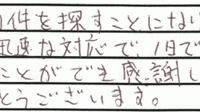 件を探すことにない
迅速な対応で、1日で
ことができ感謝し
とうございます。